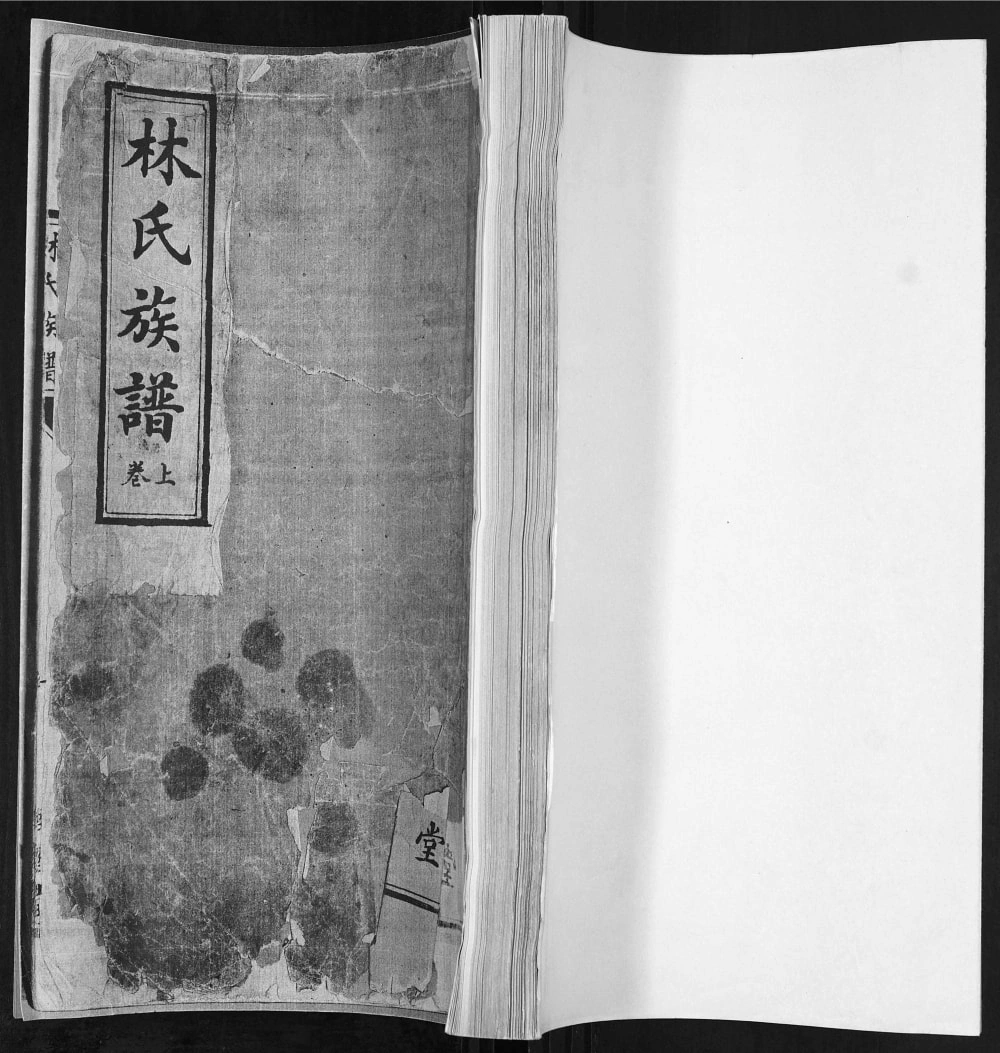 林氏族譜
卷上
堂
林氏族譜